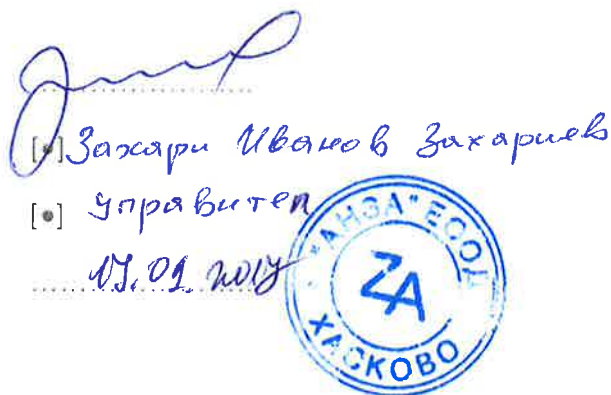 [•] Захари Иванов Захариев
[•] Управител
"АНЗА" ЕООД
ZA
ХАСКОВО